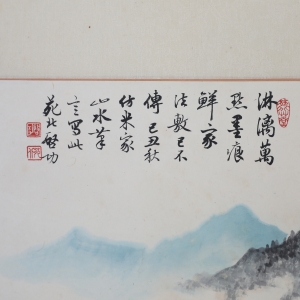 淋漓萬
點墨痕
鮮家
法敷已不
傳己丑秋
仿米家
山水筆
意寫此
苑北啓功